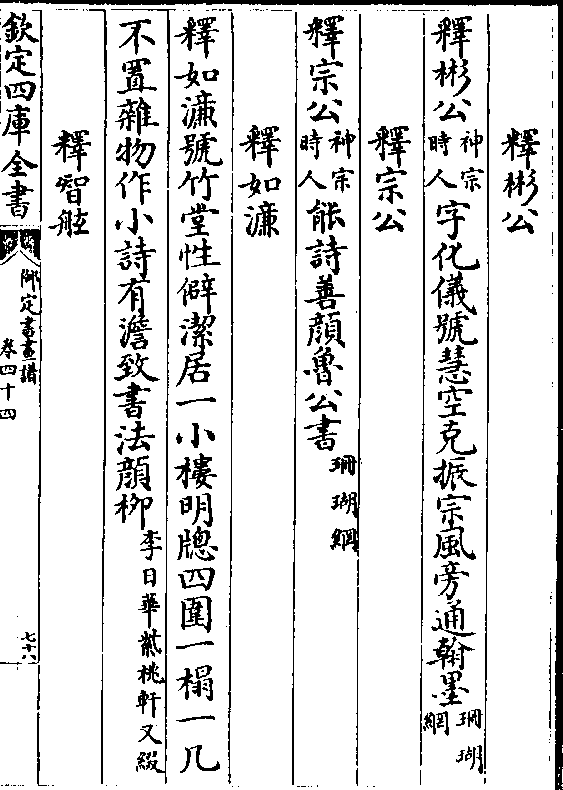 釋彬公
釋彬公神宗時人字化儀號慧空克振宗風旁通翰墨珊瑚網
釋宗公
釋宗公神宗時人能詩善顔魯公書珊瑚網
釋如濂
釋如濂號竹堂性僻潔居一小樓明牕四圍一榻一几
不置雜物作小詩有澹致書法顔柳李日華紫桃軒又綴
釋智舷
欽定四庫全書
御定書畫譜
卷四十四
七十八